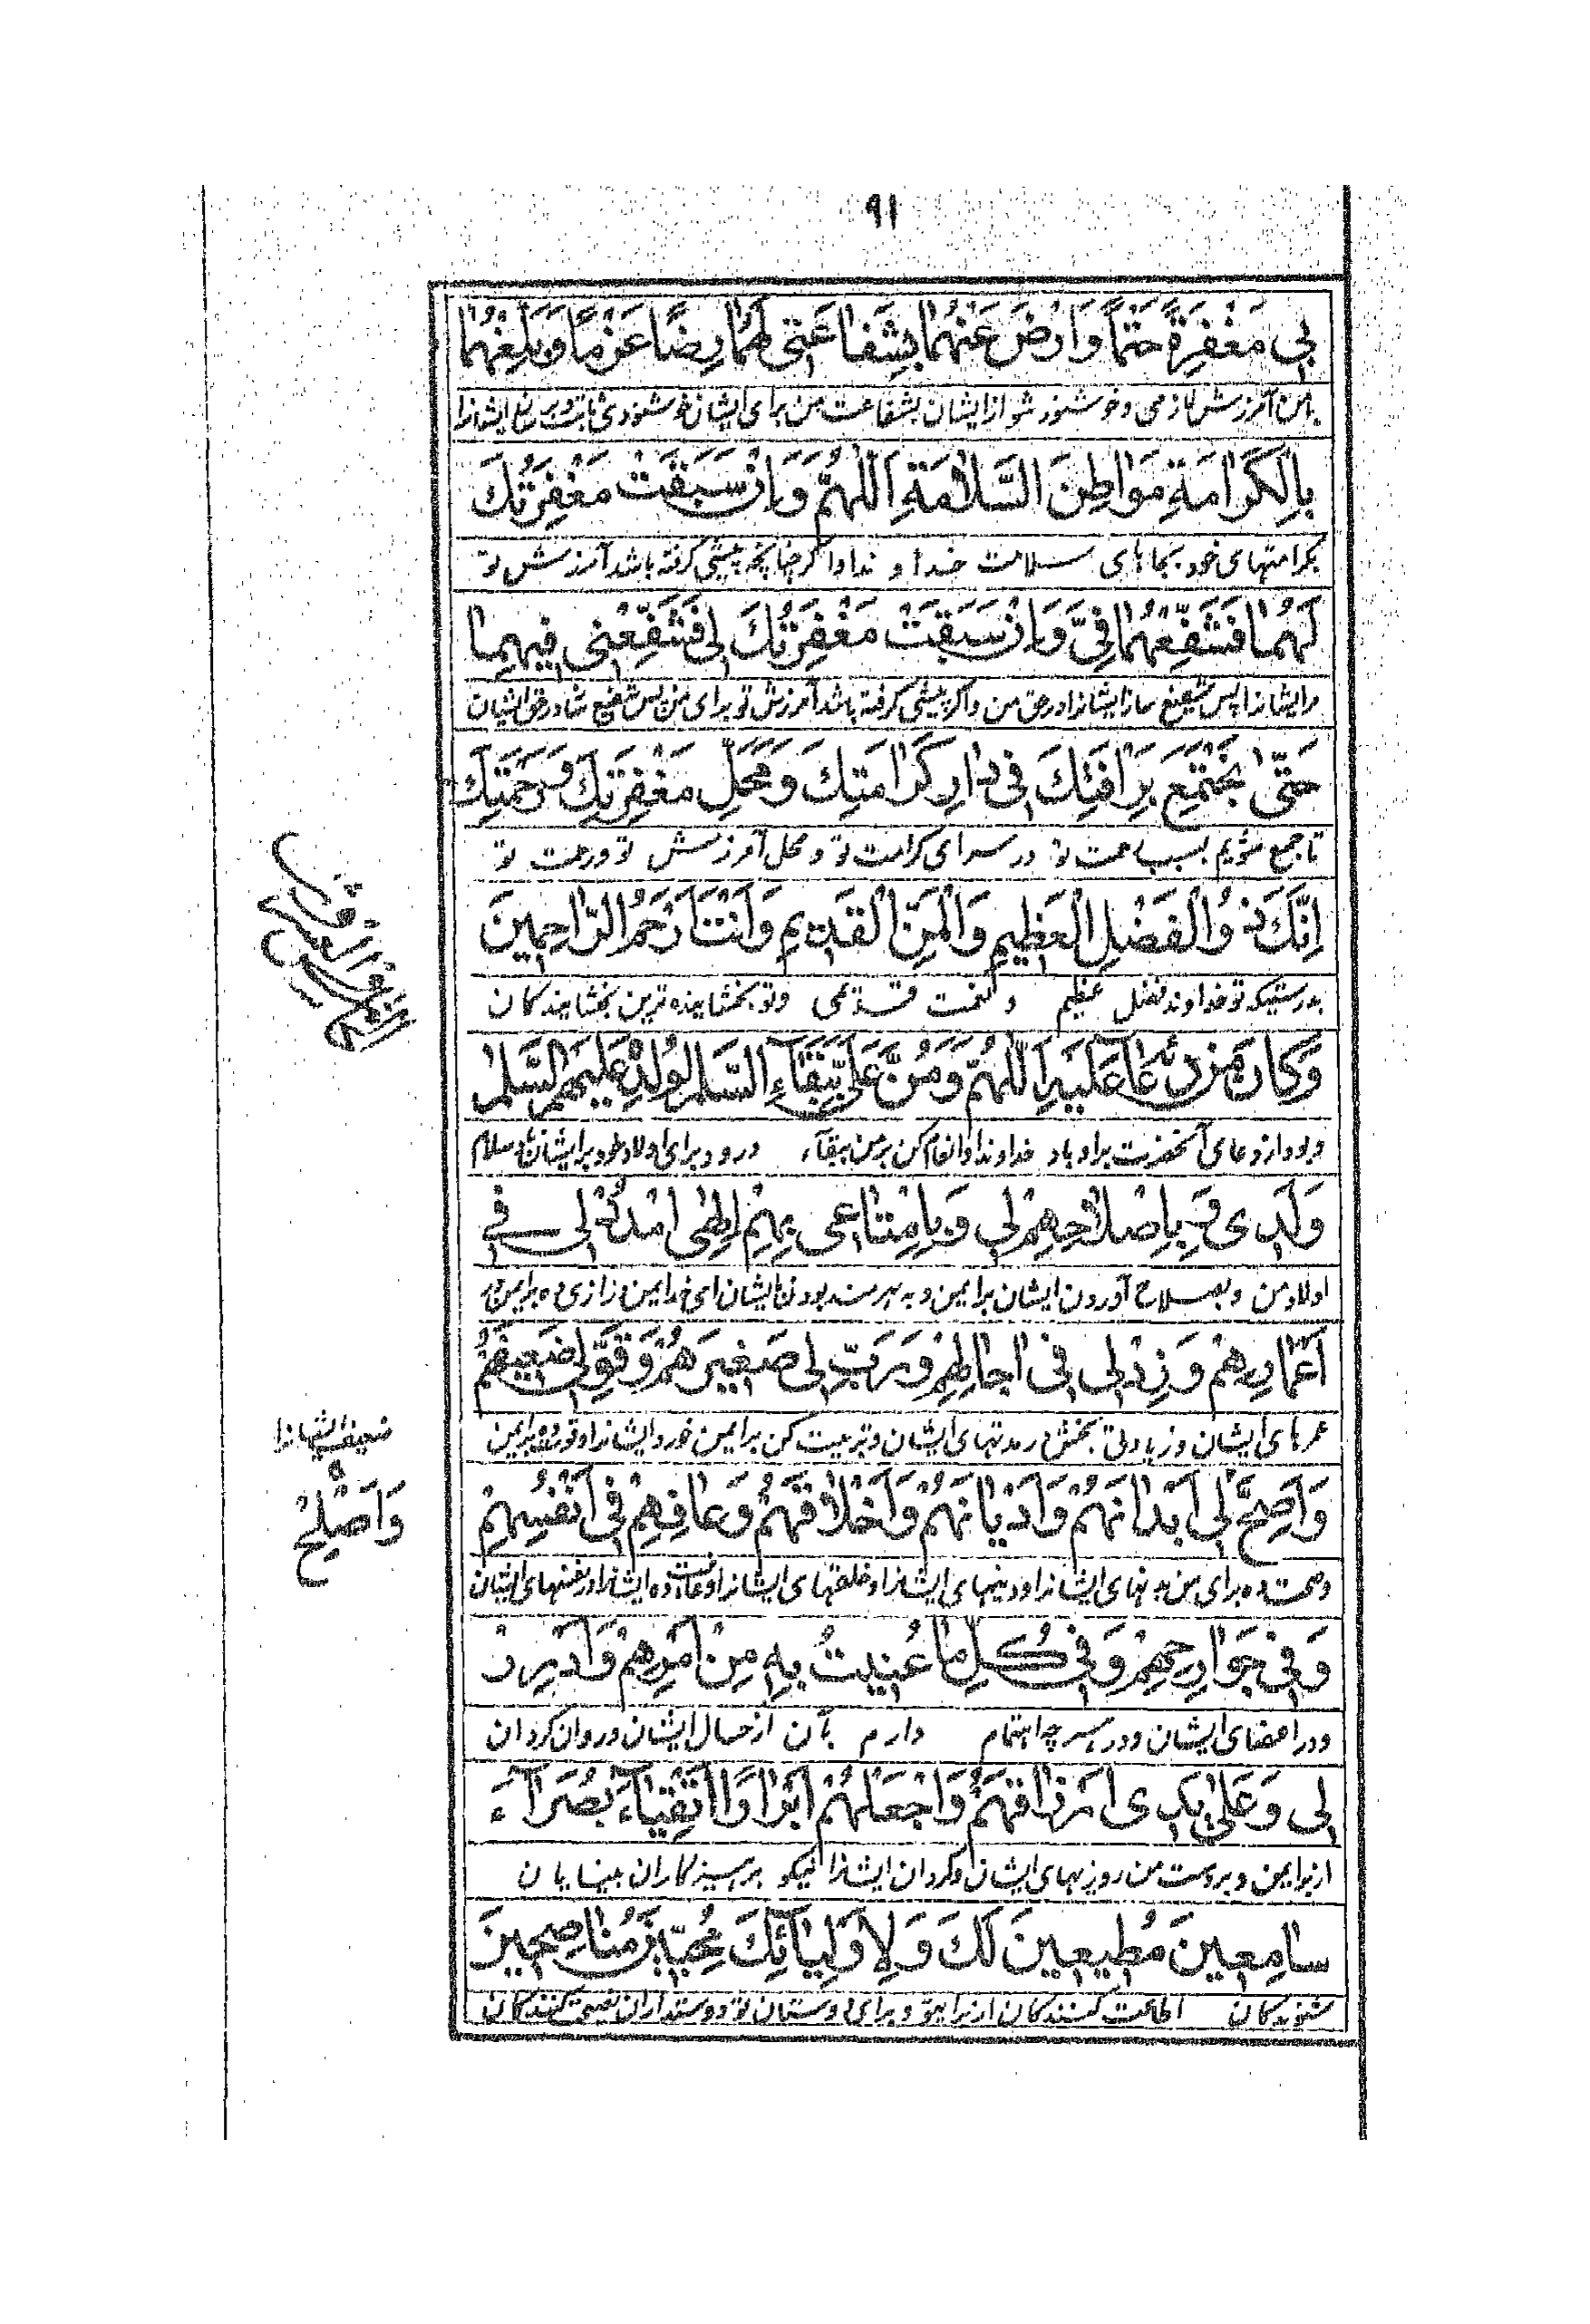 ٩١
بِي مَغْفِرَةً حَتْمًا وَارْضَ عَنْهُمَا بِشَفَاعَتِي لَهُمَا رِضًا عَزْمًا وَبَلِّغْهُمَا
بمن آمرزش لازمی و خوشنود شو از ایشان بشفاعت من برای ایشان خوشنودی ثابت و برسان ایشانرا
بِالْكَرَامَةِ مَوَاطِنَ السَّلَامَةِ اَللّٰهُمَّ وَاِنْ سَبَقَتْ مَغْفِرَتُكَ
بکرامتهای خود بجاهای سلامت خداوندا و اگر چنانچه پیشی گرفته باشد آمرزش تو
لَهُمَا فَشَفِّعْهُمَا فِيَّ وَاِنْ سَبَقَتْ مَغْفِرَتُكَ لِي فَشَفِّعْنِي فِيهِمَا
مر ایشانرا پس شفیع ساز ایشانرا در حق من و اگر پیشی گرفته باشد آمرزش تو برای من پس شفیع ساز در حق ایشان
حَتّٰى نَجْتَمِعَ بِرَأْفَتِكَ فِي دَارِ كَرَامَتِكَ وَمَحَلِّ مَغْفِرَتِكَ وَرَحْمَتِكَ
تا جمع شویم بسبب رحمت تو در سرای کرامت تو و محل آمرزش تو و رحمت تو
اِنَّكَ ذُو الْفَضْلِ الْعَظِيمِ وَالْمَنِّ الْقَدِيمِ وَاَنْتَ اَرْحَمُ الرَّاحِمِينَ
بدرستیکه تو خداوند فضل عظیم و نعمت قدیمی و تو بخشاینده ترین بخشایندگان
وَكَانَ مِنْ دُعَائِهِ عَلَيْهِ السَّلَامُ لِوُلْدِهِ عَلَيْهِمُ السَّلَامُ اَللّٰهُمَّ وَمُنَّ عَلَيَّ بِبَقَاءِ
و بود از دعای آنحضرت بر او باد درود برای اولاد خود بر ایشان باد سلام خداوندا و انعام کن بر من ببقاء
وُلْدِي وَ بِاِصْلَاحِهِمْ لِي وَ بِاِمْتَاعِي بِهِمْ اِلٰهِي امْدُدْ لِي فِي
اولاد من و بصلاح آوردن ایشان برایمن و به بهره‌مند بودن بایشان ای خدایمن درازی ده برایمن در
اَعْمَارِهِمْ وَ زِدْ لِي فِي اٰجَالِهِمْ وَ رَبِّ لِي صَغِيرَهُمْ وَ قَوِّ لِي ضَعِيفَهُمْ
عمرهای ایشان و زیادتی بخش در مدتهای ایشان و تربیت کن برایمن خورد ایشانرا و قوت ده برایمن
ضعیف ایشانرا
وَاَصِحَّ لِي اَبْدَانَهُمْ وَاَدْيَانَهُمْ وَاَخْلَاقَهُمْ وَعَافِهِمْ فِي اَنْفُسِهِمْ
وَاَصْلِحْ
و صحت ده برای من بدنهای ایشانرا و دینهای ایشانرا و خلقتهای ایشانرا و عافیت ده ایشانرا در نفسهای ایشان
وَ فِي جَوَارِحِهِمْ وَ فِي كُلِّ مَا عُنِيتُ بِهِ مِنْ اَمْرِهِمْ وَاَدْرِرْ
و در اعضای ایشان و در هر چه اهتمام دارم بآن از حال ایشان و روان گردان
لِي وَ عَلٰى يَدِي اَرْزَاقَهُمْ وَاجْعَلْهُمْ اَبْرَارًا اَتْقِيَاءَ بُصَرَاءَ
از برایمن و بر دست من روزیهای ایشان و گردان ایشانرا نیکو پرهیزکاران بینایان
سَامِعِينَ مُطِيعِينَ لَكَ وَلِاَوْلِيَائِكَ مُحِبِّينَ مُنَاصِحِينَ
شنوندگان اطاعت کنندگان از برایتو و برای دوستان تو دوستداران نصیحت کنندگان